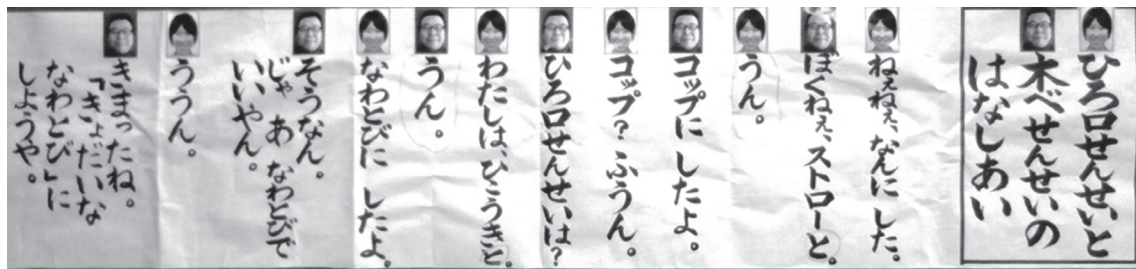 ひろ口せんせいと
木べせんせいの
はなしあい
ねぇねぇ、なんに した。
ぼくねぇ、ストローと。
うん。
コップに したよ。
コップ？ ふうん。
ひろ口せんせいは？
わたしは、ひこうきと。
うん。
なわとびに したよ。
そうなん。
じゃ あ なわとびで
いいやん。
ううん。
きまったね。
「きょだいな
なわとび」に
しようや。